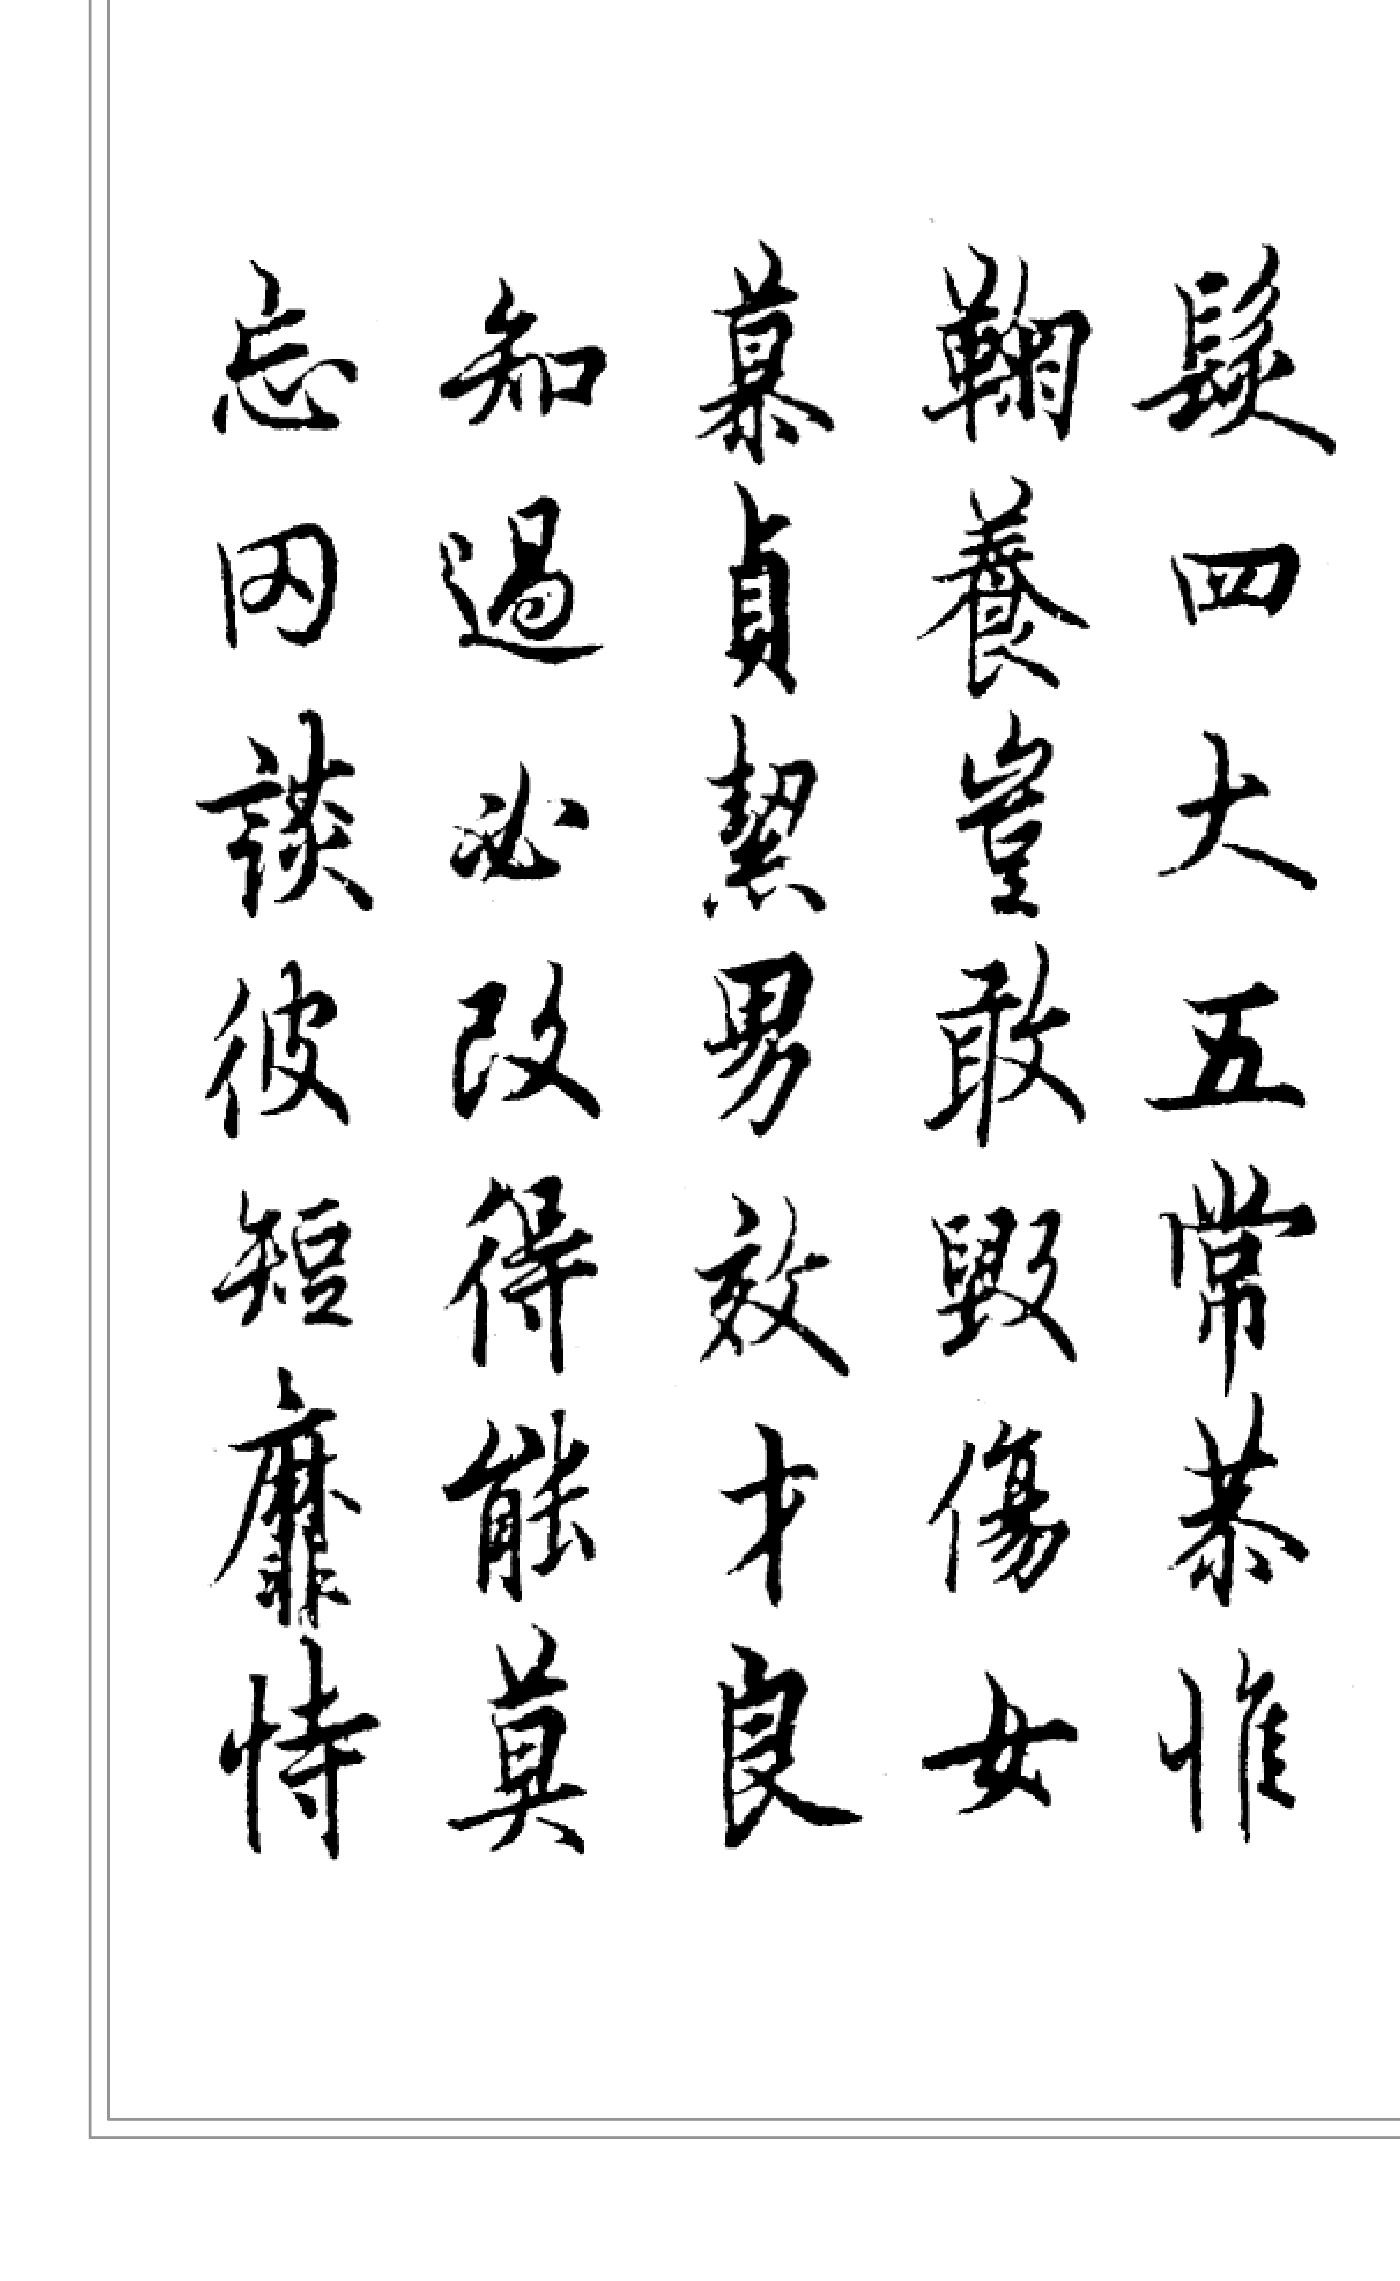 髮四大五常恭惟
鞠養豈敢毀傷女
慕貞絜男效才良
知過必改得能莫
忘罔談彼短靡恃